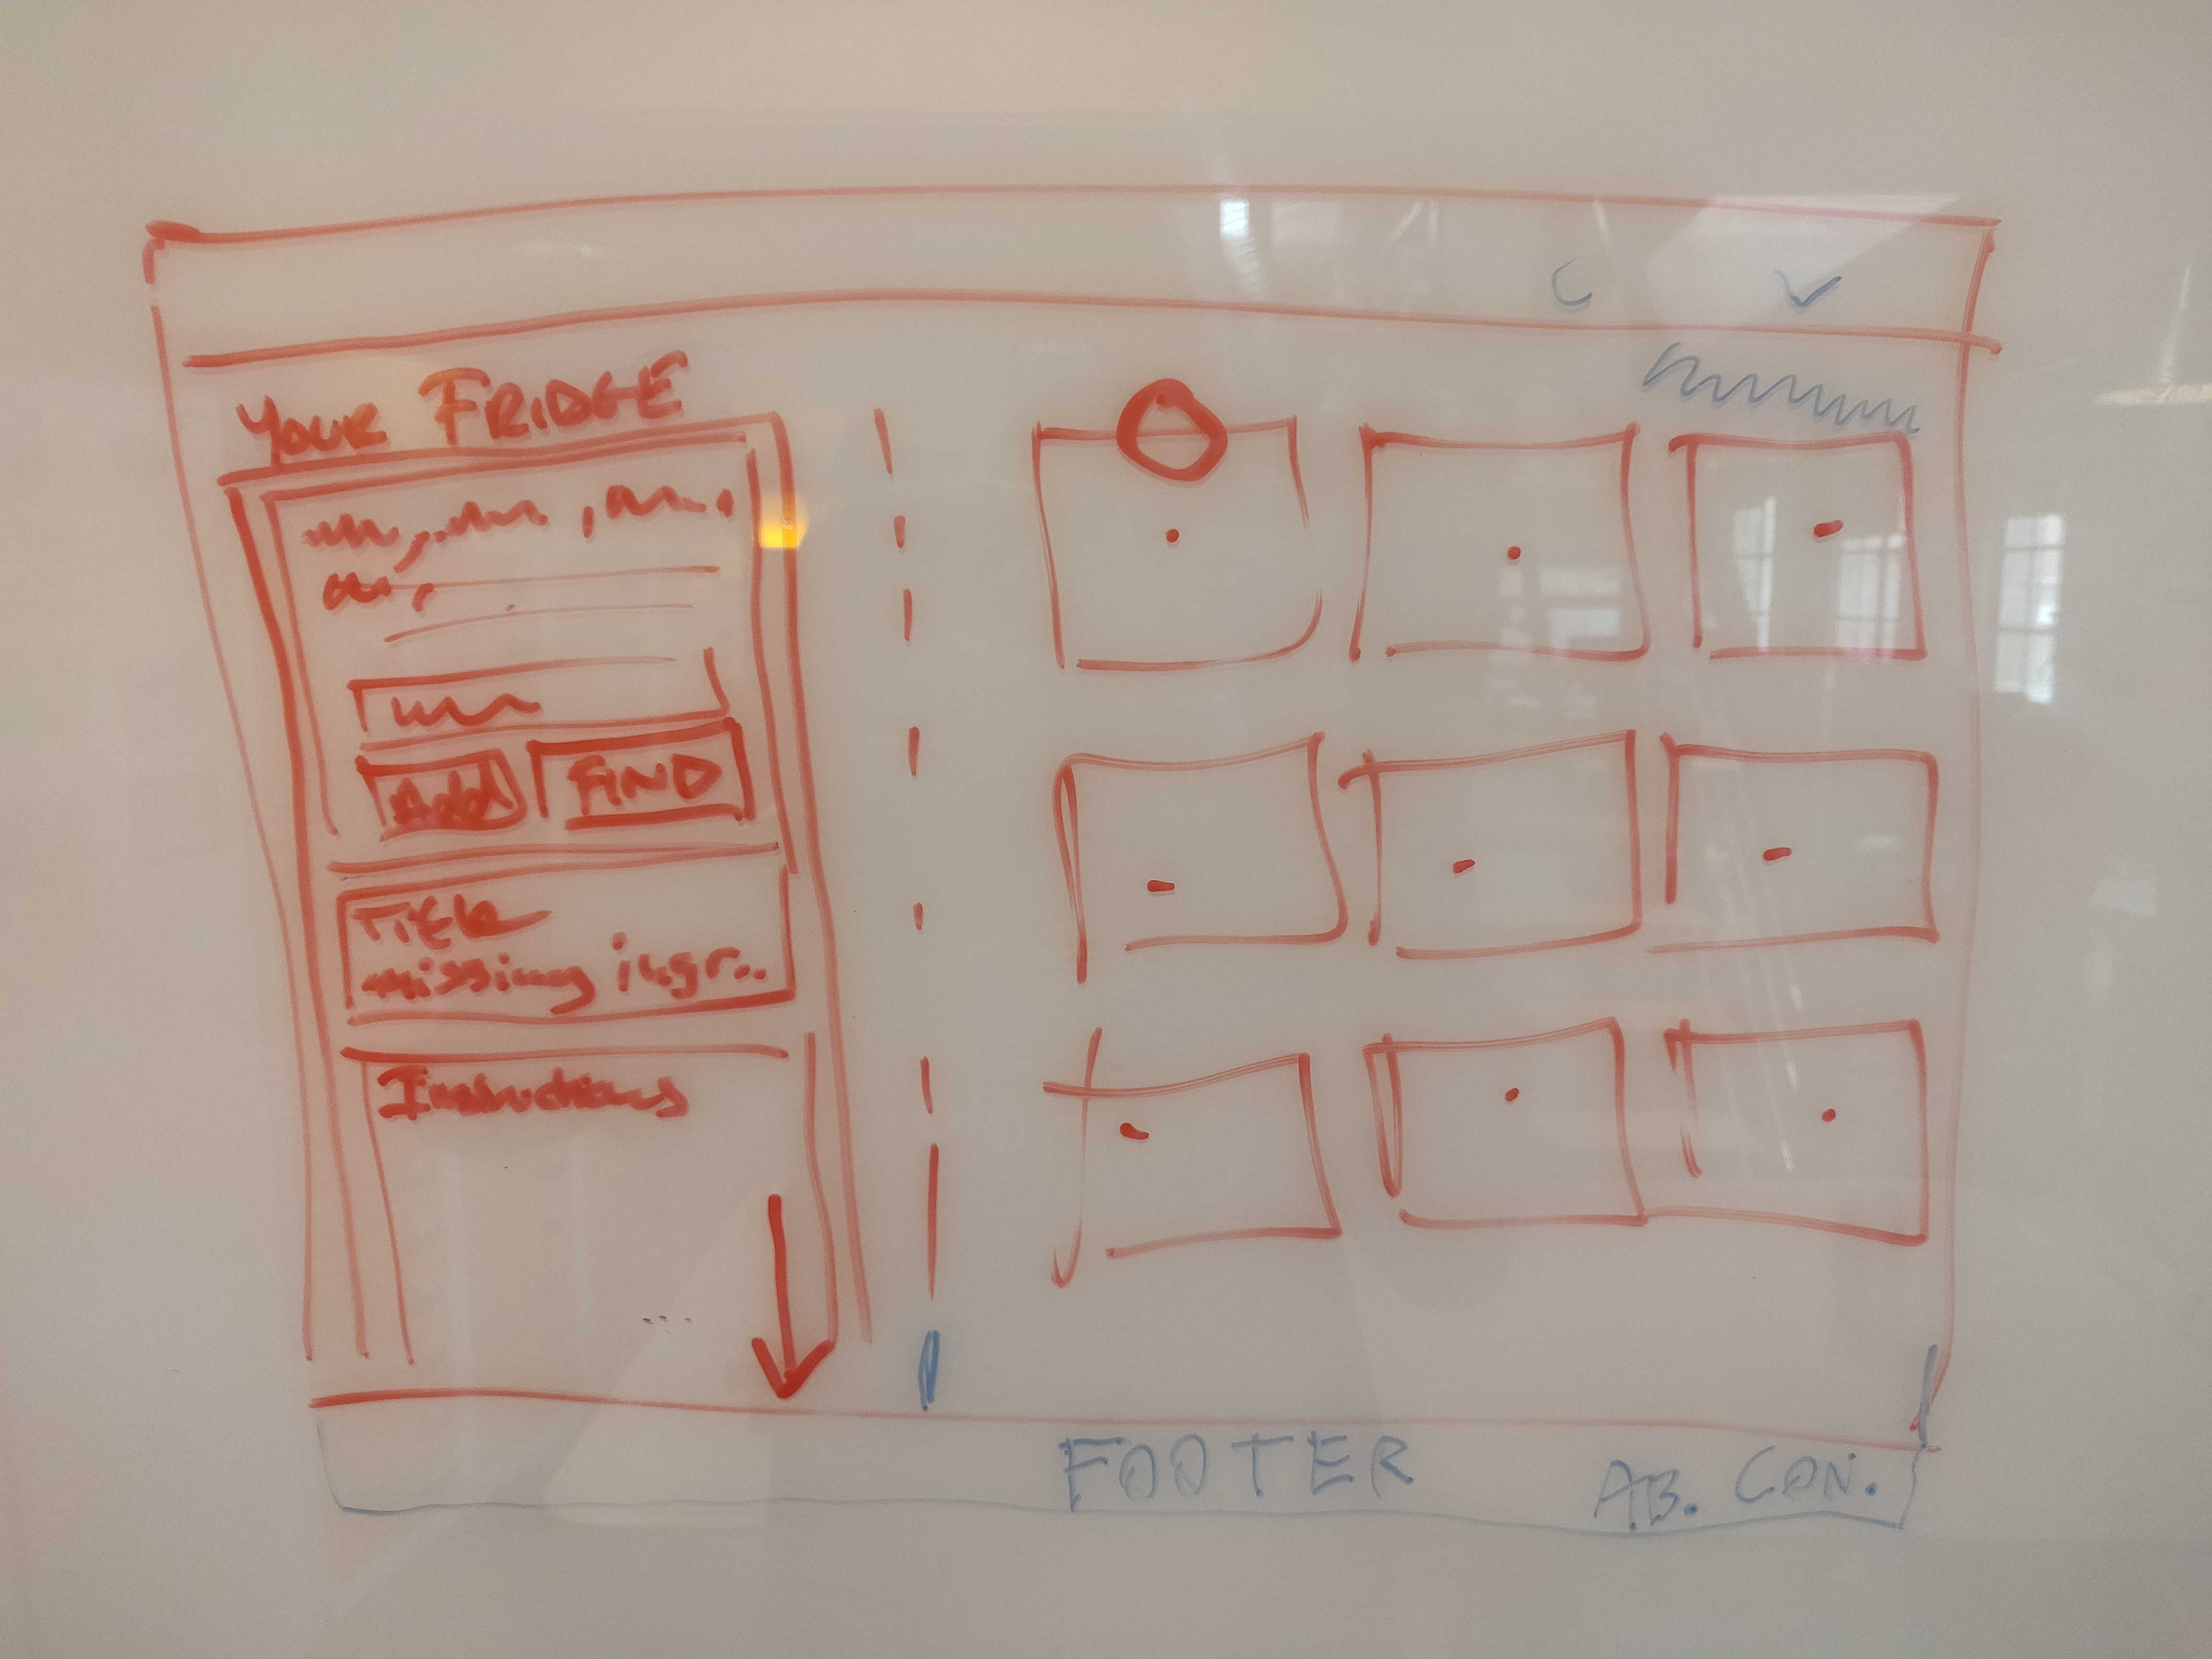 YOUR FRIDGE
Add FIND
Title
missing ingr..
Instructions
...
FOOTER AB. CON.